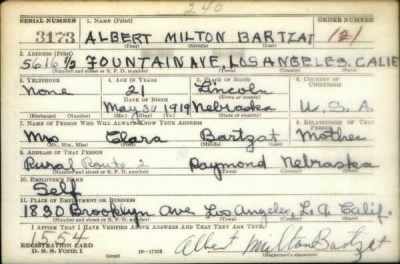 240
SERIAL NUMBER 1. NAME (Print) ORDER NUMBER
3173 ALBERT MILTON BARTZAT 121
(First) (Middle) (Last)
2. ADDRESS (Print)
5616 1/2 FOUNTAIN AVE, LOS ANGELES, CALIF
(Number and street or R. F. D. number) (Town) (County) (State)
3. TELEPHONE 4. AGE IN YEARS 5. PLACE OF BIRTH 6. COUNTRY OF CITIZENSHIP
None 21 Lincoln
DATE OF BIRTH (Town or county)
May 1919 Nebraska U.S.A.
(Exchange) (Number) (Mo.) (Day) (Yr.) (State or country)
7. NAME OF PERSON WHO WILL ALWAYS KNOW YOUR ADDRESS 8. RELATIONSHIP OF THAT PERSON
Mrs Clara Bartzat Mother
(Mr., Mrs., Miss) (First) (Middle) (Last)
9. ADDRESS OF THAT PERSON
Rural Route 2 Raymond Nebraska
(Number and street or R. F. D. number) (Town) (County) (State)
10. EMPLOYER'S NAME
Self
11. PLACE OF EMPLOYMENT OR BUSINESS
1836 Brooklyn Ave Los Angeles L.A. Calif.
(Number and street or R. F. D. number) (Town) (County) (State)
I AFFIRM THAT I HAVE VERIFIED ABOVE ANSWERS AND THAT THEY ARE TRUE.
1554
REGISTRATION CARD
D. S. S. FORM 1 16-17105 Albert Milton Bartzat
(Registrant's signature)